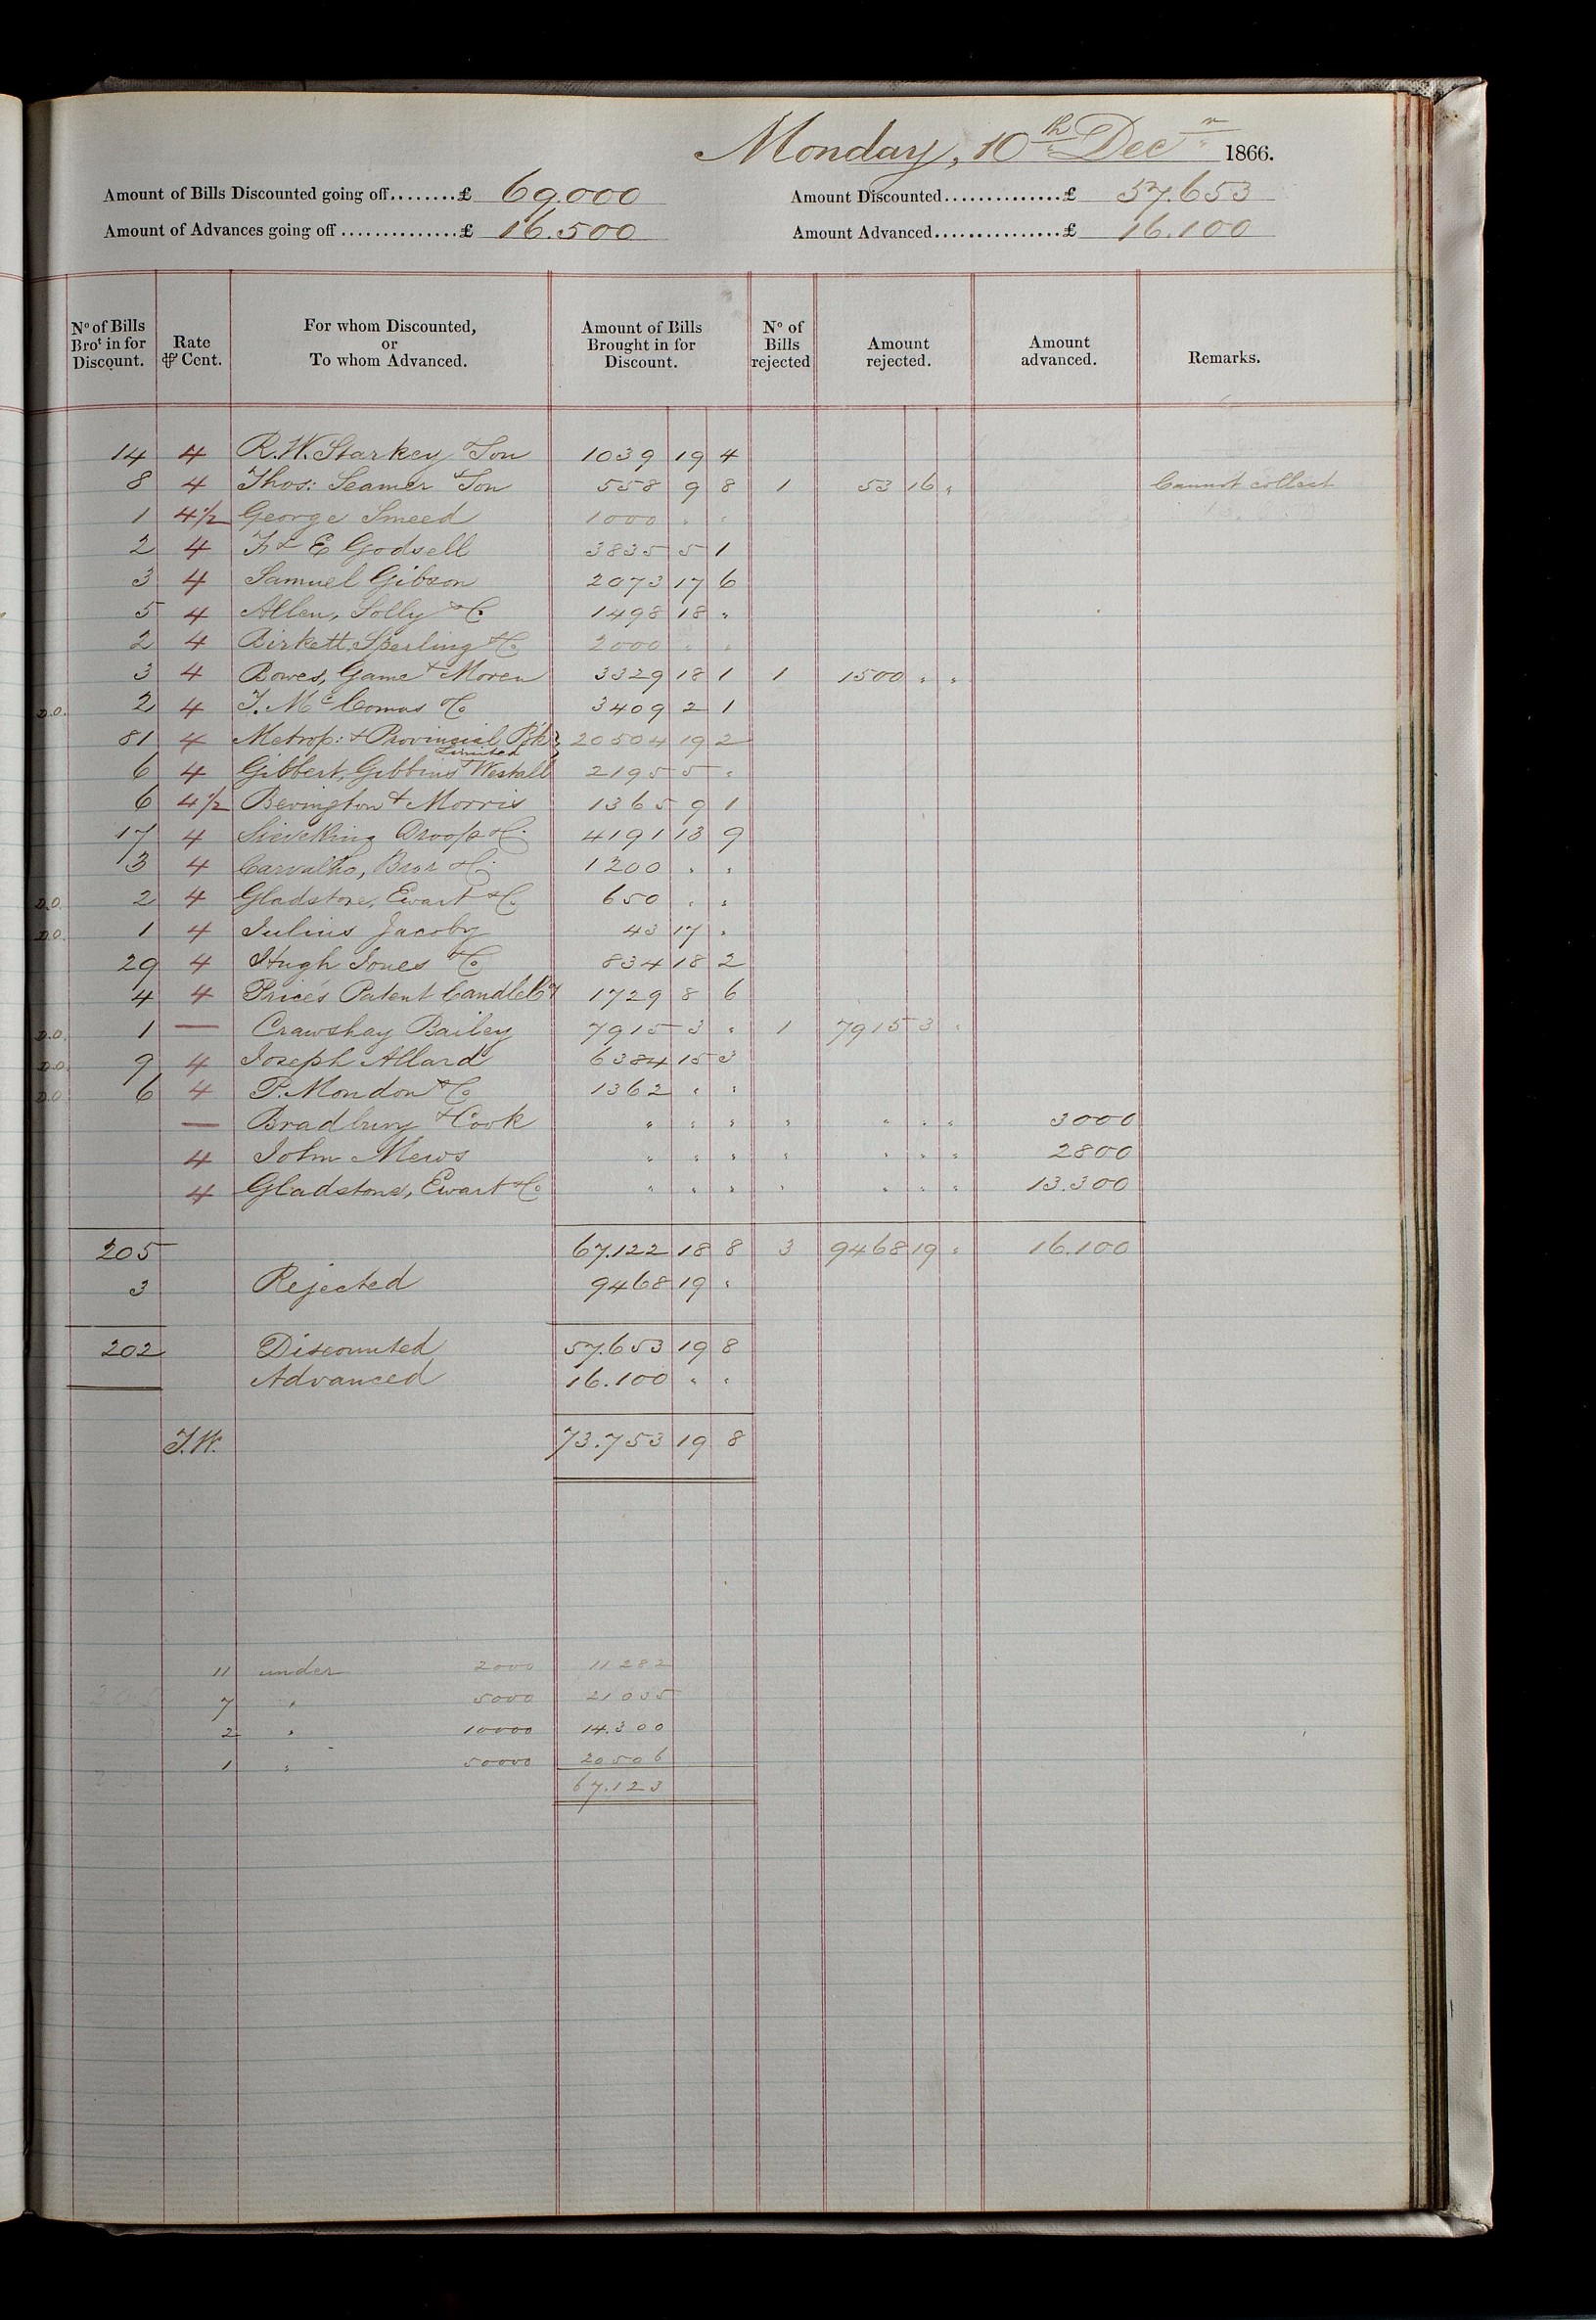 Monday, 10th Decr 1866.
Amount of Bills Discounted going off........£ 69.000 Amount Discounted..............£ 57.653
Amount of Advances going off..............£ 16.500 Amount Advanced...............£ 16.100
No of Bills Brot in for Discount. Rate ⅌ Cent. For whom Discounted, or To whom Advanced. Amount of Bills Brought in for Discount. No of Bills rejected Amount rejected. Amount advanced. Remarks.
14 4 R. W. Starkey & Son 1039 19 4
8 4 Thos: Seamer & Son 558 9 8 1 53 16 " Cannot collect
1 4½ George Smeed 1000 " "
2 4 F & E Godsell 3835 5 1
3 4 Samuel Gibson 2073 17 6
5 4 Allen, Solly & Co 1498 18 "
2 4 Birkett, Sperling & Co 2000 " "
3 4 Bowes, Game & Moren 3329 18 1 1 1500 " "
D.O. 2 4 J. McComas & Co 3409 2 1
81 4 Metrop: & Provincial Bk Limited 20504 19 2
6 4 Gibbert, Gibbins & Westall 2195 5 "
6 4½ Bevington & Morris 1365 9 1
17 4 Sieveking Droop & Co 4191 13 9
3 4 Carvalho, Bros & Co 1200 " "
D.O. 2 4 Gladstone, Ewart & Co 650 " "
D.O. 1 4 Julius Jacoby 43 17 "
29 4 Hugh Jones & Co 834 18 2
4 4 Price's Patent Candle Coy 1729 8 6
D.O. 1 — Crawshay Bailey 7915 3 " 1 7915 3 "
D.O. 9 4 Joseph Allard 6384 15 3
D.O. 6 4 P. Mondon & Co 1362 " "
— Bradbury & Cook " " " " " " " 3000
4 John Mews " " " " " " " 2800
4 Gladstone, Ewart & Co " " " " " " " 13.300
205 67.122 18 8 3 9468 19 " 16.100
3 Rejected 9468 19 "
202 Discounted 57.653 19 8
Advanced 16.100 " "
J.W. 73.753 19 8
11 under 2000 11282
7 " 5000 21035
2 " 10000 14.300
1 " 50000 20506
67.123